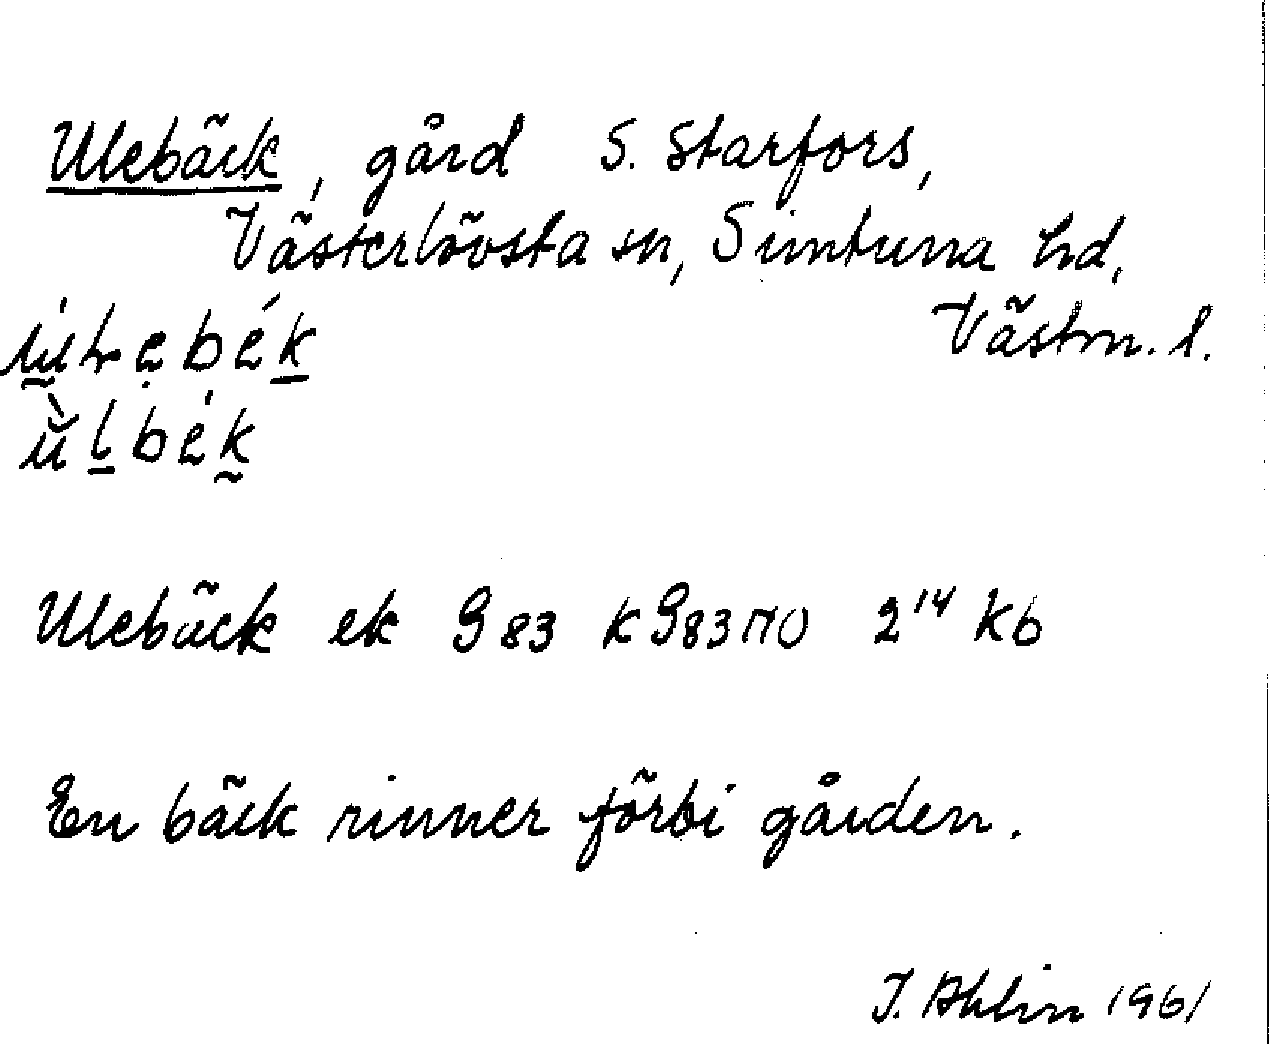 Ulebäck, gård S. Starfors,
Västerlövsta sn, Simtuna hd,
Västm. l.
Ulebäck ek G 83 KG83NO 2¹⁴ Kb
En bäck rinner förbi gården.
I. Ahlin 1961